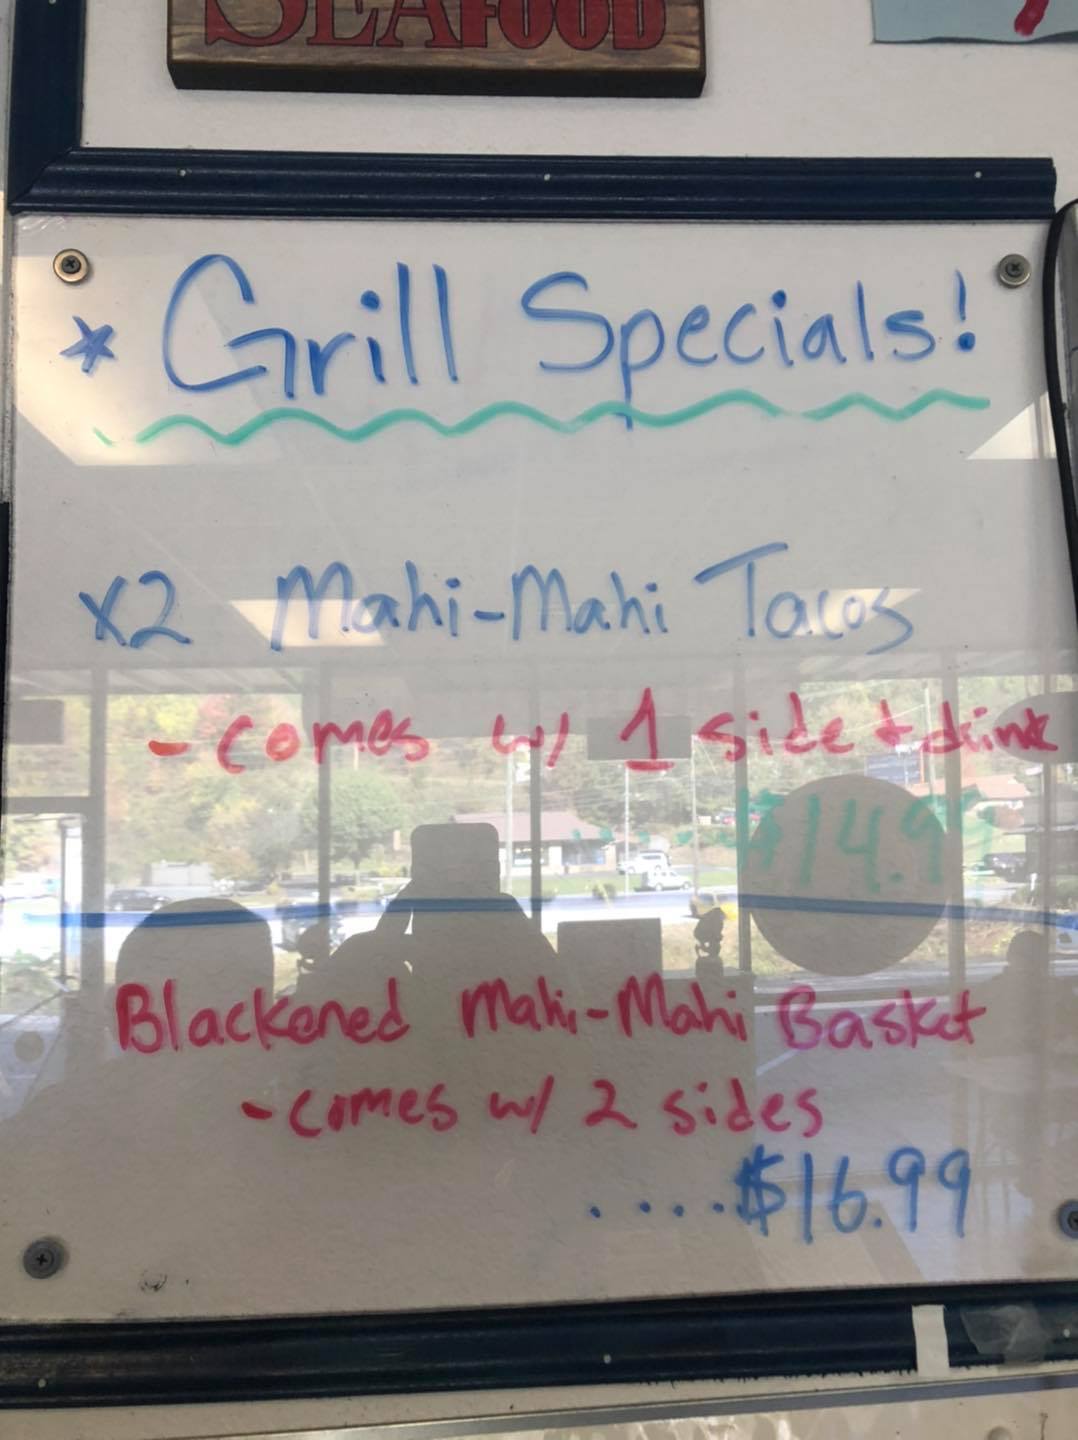 SEAFOOD
* Grill Specials!
x2 Mahi-Mahi Tacos
- comes w/ 1 side + drink
$14.99
Blackened Mahi-Mahi Basket
- comes w/ 2 sides
.....$16.99